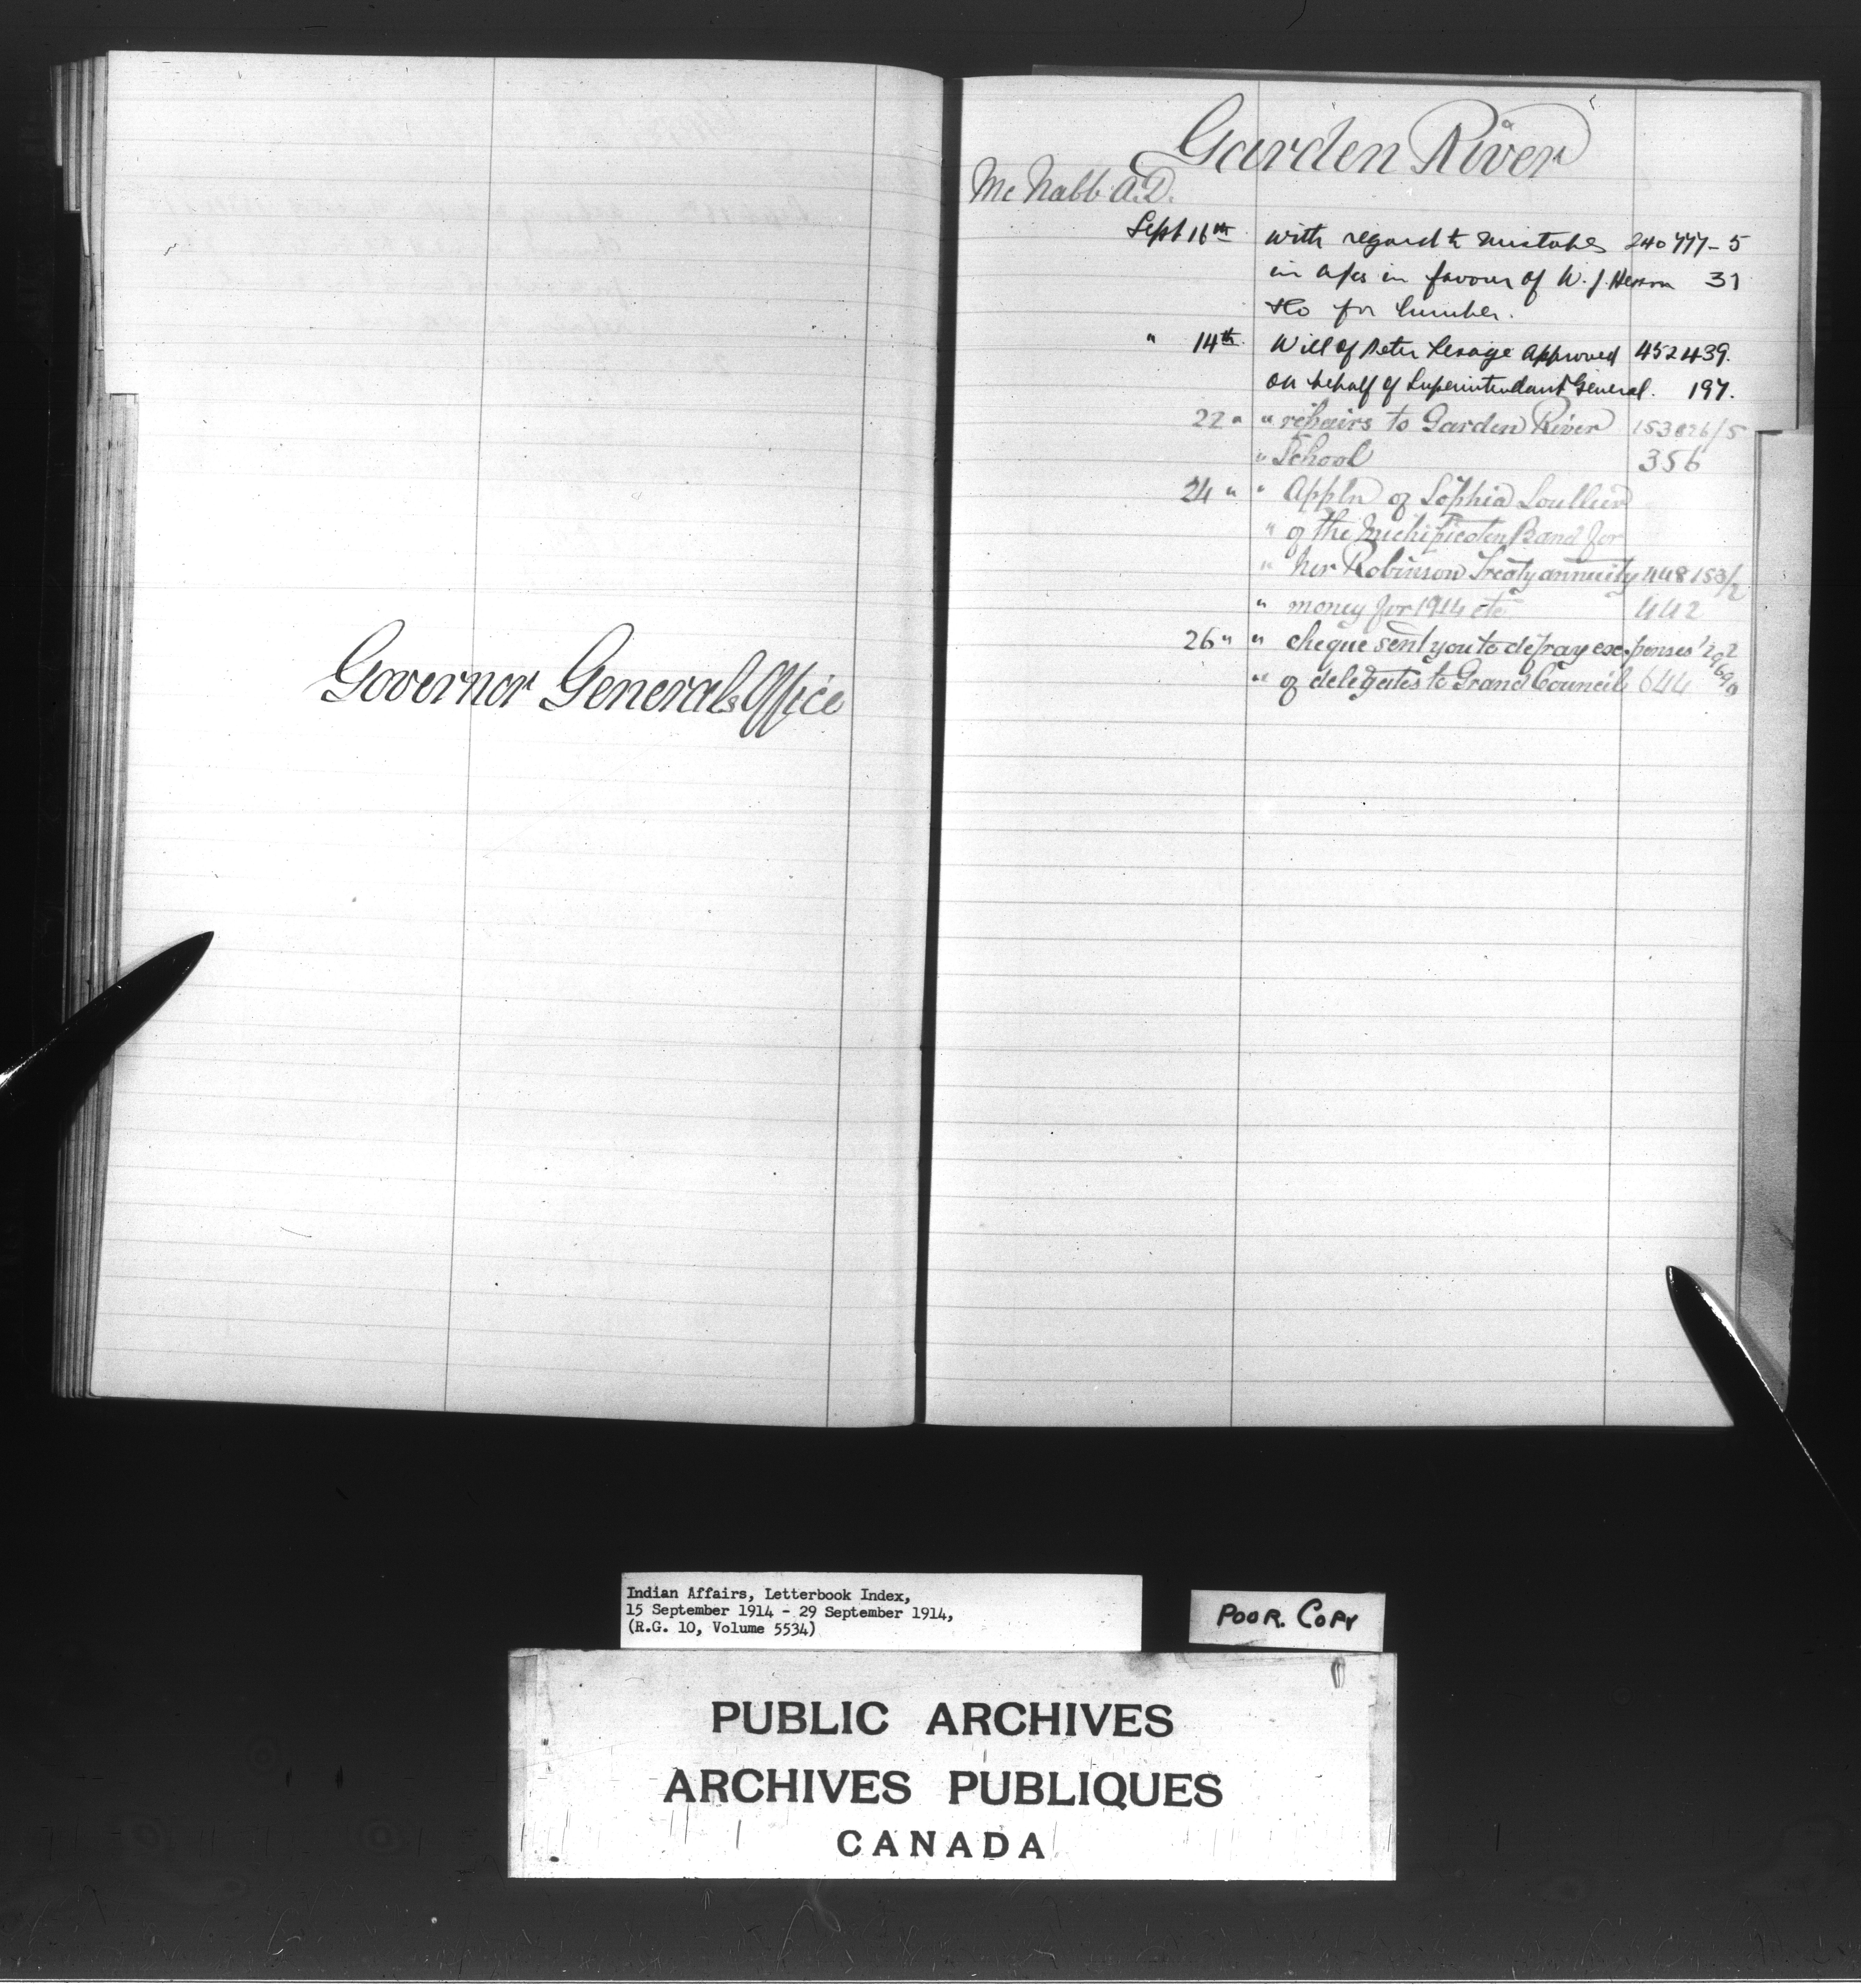 Governor Generals Office
Garden River
Mc Nabb A.D.
Sept 16th with regard to mistakes 240777-5
in a/cs in favour of W. J. Hesson 31
&Co for lumber.
" 14th Will of Peter Lesage approved 452439.
on behalf of Superintendant General. 197.
22 " " repairs to Garden River 153826/5
" School 356
24 " " Appln of Sophia Soullier
" of the Michipicoten Band for
" her Robinson Treaty annuity 448153/2
" money for 1914 etc 442
26 " " cheque sent you to defray expenses
" of delegates to Grand Council 644
Indian Affairs, Letterbook Index,
15 September 1914 - 29 September 1914,
(R.G. 10, Volume 5534)
POOR. COPY
PUBLIC ARCHIVES
ARCHIVES PUBLIQUES
CANADA